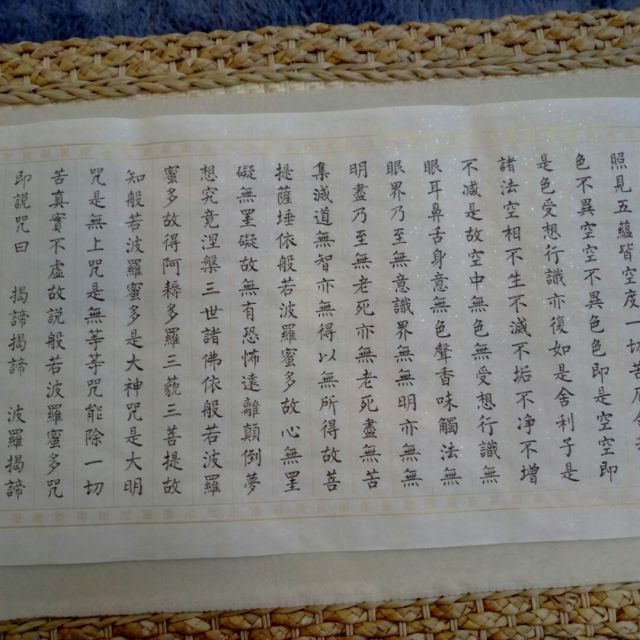 照見五蘊皆空度一切苦厄
色不異空空不異色色即是空空即
是色受想行識亦復如是舍利子是
諸法空相不生不滅不垢不净不增
不減是故空中無色無受想行識無
眼耳鼻舌身意無色聲香味觸法無
眼界乃至無意識界無無明亦無無
明盡乃至無老死亦無老死盡無苦
集滅道無智亦無得以無所得故菩
提薩埵依般若波羅蜜多故心無罣
礙無罣礙故無有恐怖遠離顛倒夢
想究竟涅槃三世諸佛依般若波羅
蜜多故得阿耨多羅三藐三菩提故
知般若波羅蜜多是大神咒是大明
咒是無上咒是無等等咒能除一切
苦真實不虛故說般若波羅蜜多咒
即說咒曰 揭諦揭諦 波羅揭諦